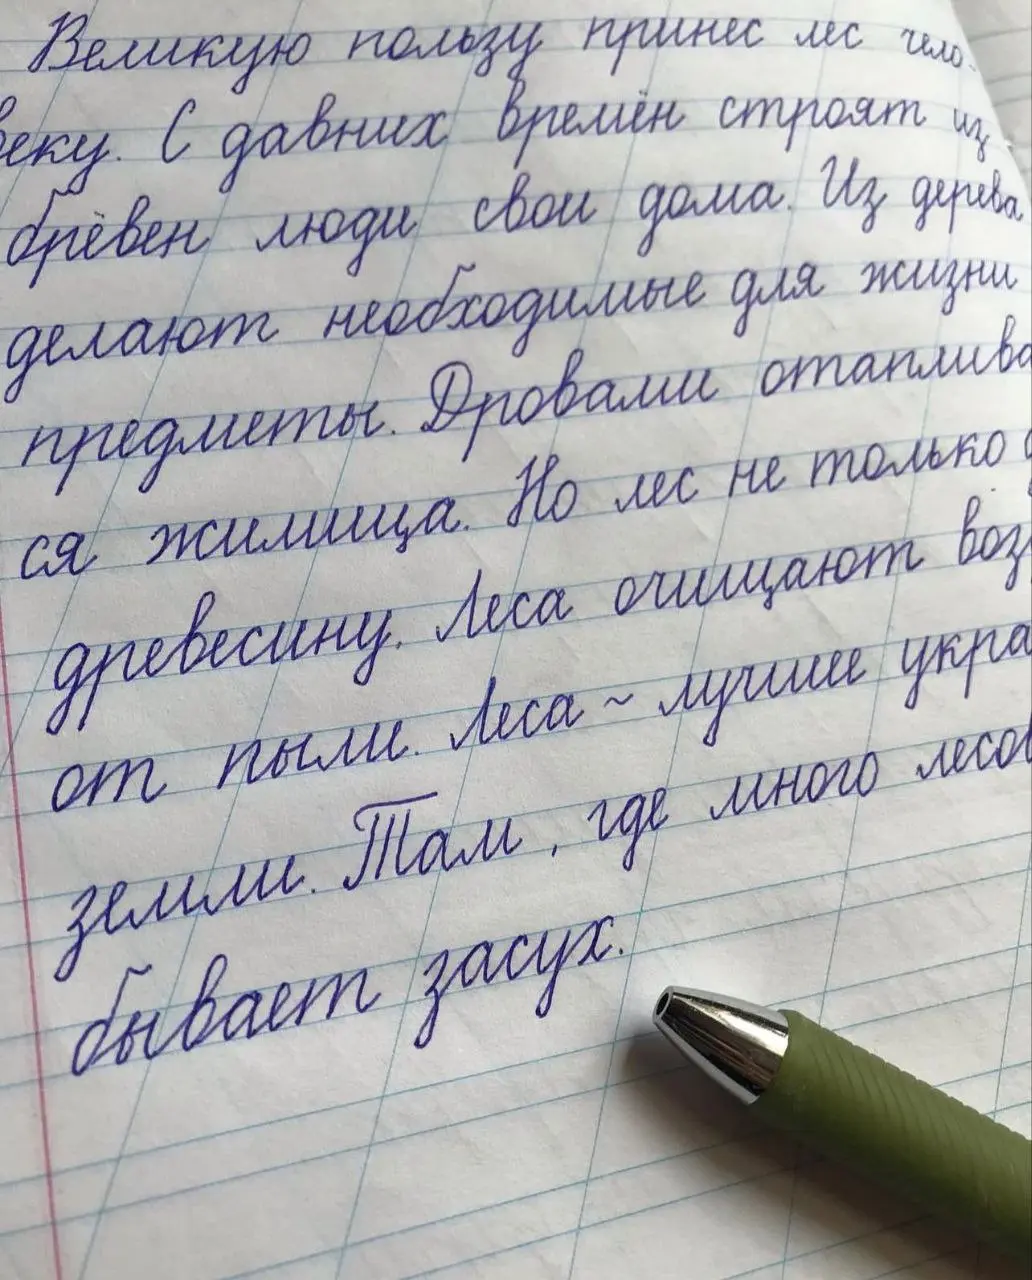 Великую пользу принес лес чело-
веку. С давних времён строят из
брёвен люди свои дома. Из дерева
делают необходимые для жизни
предметы. Дровами отаплива
ся жилища. Но лес не только
древесину. Леса очищают воз
от пыли. Леса ~ лучшее укра
земли. Там, где много лесов
бывает засух.